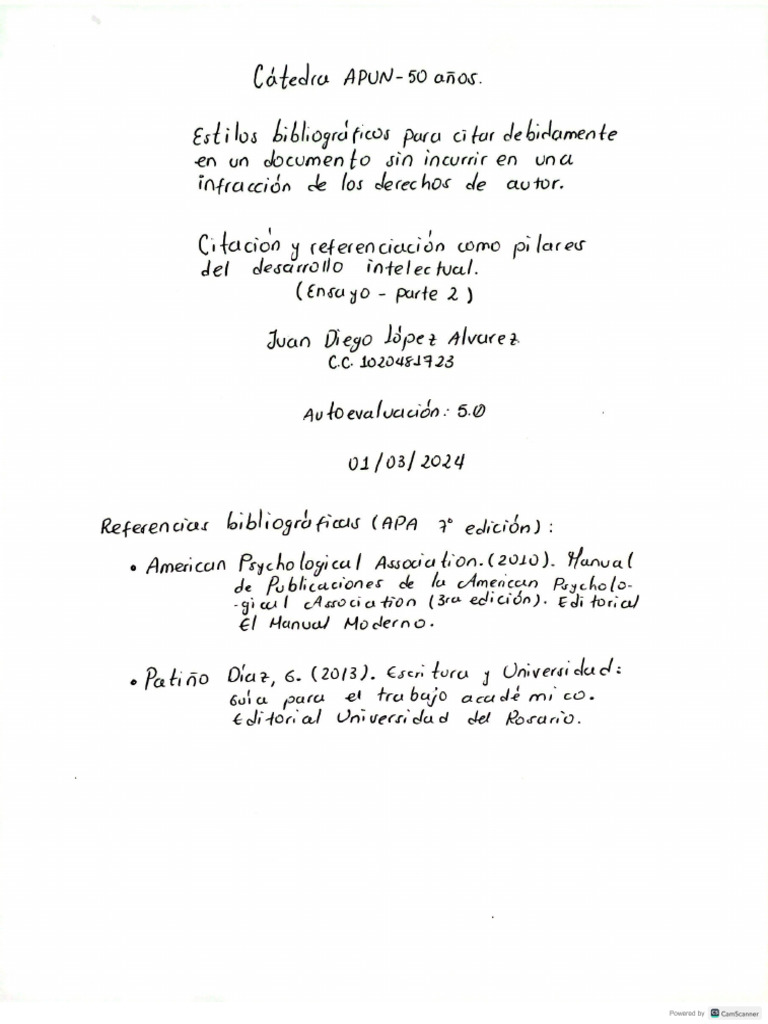 Cátedra APUN-50 años.
Estilos bibliográficos para citar debidamente
en un documento sin incurrir en una
infracción de los derechos de autor.
Citación y referenciación como pilares
del desarrollo intelectual.
(Ensayo - parte 2)
Juan Diego López Alvarez
C.C. 1020481723
Autoevaluación: 5.0
01/03/2024
Referencias bibliográficas (APA 7° edición):
• American Psychological Association. (2010). Manual
de Publicaciones de la American Psycholo-
-gical Association (3ra edición). Editorial
El Manual Moderno.
• Patiño Díaz, G. (2013). Escritura y Universidad:
Guía para el trabajo académico.
Editorial Universidad del Rosario.
Powered by CS CamScanner